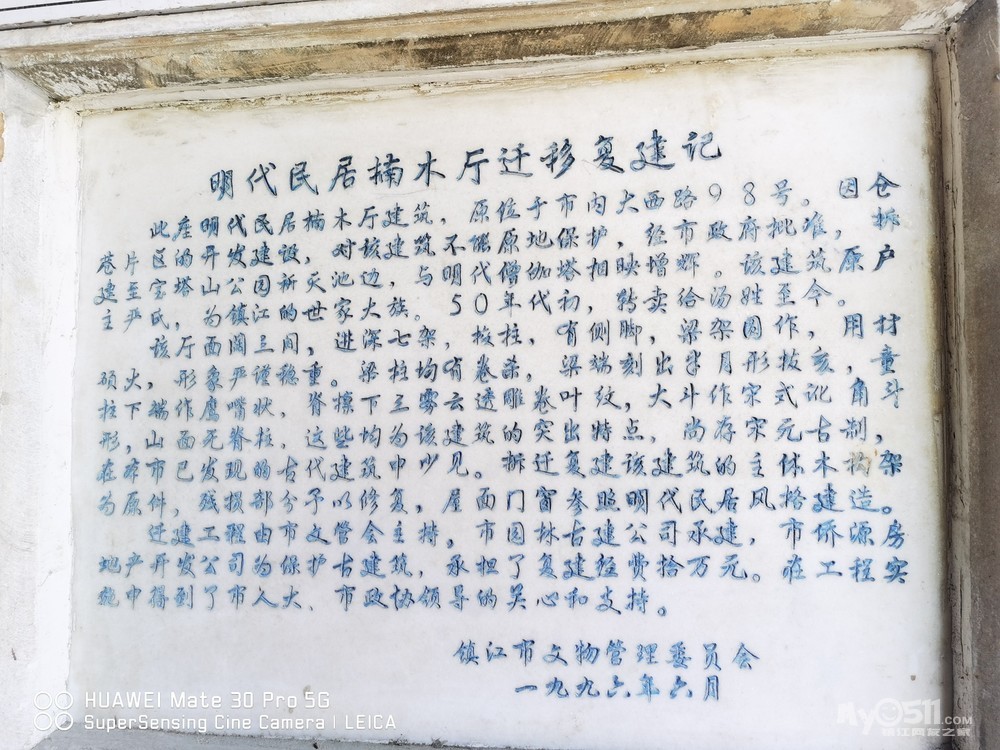 明代民居楠木厅迁移复建记
此座明代民居楠木厅建筑，原位于市内大西路98号。因仓
巷片区的开发建设，对该建筑不能原地保护，经市政府批准，拆
建至宝塔山公园新天池边，与明代僧伽塔相映增辉。该建筑原户
主严氏，为镇江的世家大族。50年代初，转卖给汤姓至今。
该厅面阔三间，进深七架，梭柱，有侧脚，梁架圆作，用材
硕大，形象严谨稳重。梁柱均有卷杀，梁端刻出半月形拔亥，童
柱下端作鹰嘴状，脊檩下三雾云透雕卷叶纹，大斗作宋式讹角斗
形，山面无脊柱，这些均为该建筑的突出特点，尚存宋元古制，
在本市已发现的古代建筑中少见。拆迁复建该建筑的主体木构架
为原件，残损部分予以修复，屋面门窗参照明代民居风格建造。
迁建工程由市文管会主持，市园林古建公司承建，市侨源房
地产开发公司为保护古建筑，承担了复建经费拾万元。在工程实
施中得到了市人大、市政协领导的关心和支持。
镇江市文物管理委员会
一九九六年六月
HUAWEI Mate 30 Pro 5G
SuperSensing Cine Camera | LEICA
My0511.com
镇江网友之家